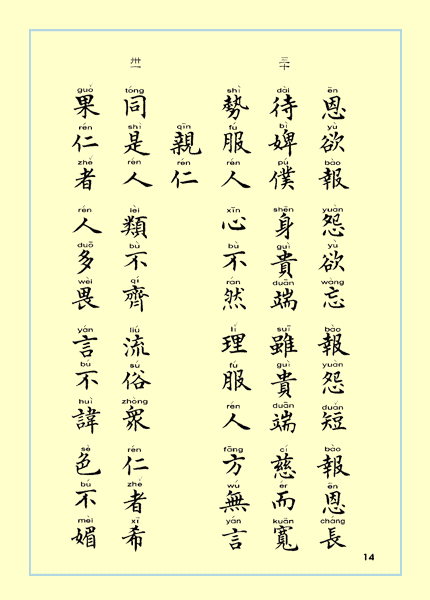 ēn yù bào yuàn yù wàng bào yuàn duǎn bào ēn cháng
恩欲報 怨欲忘 報怨短 報恩長
三十
dài bì pú shēn guì duān suī guì duān cí ér kuān
待婢僕 身貴端 雖貴端 慈而寬
shì fú rén xīn bù rán lǐ fú rén fāng wú yán
勢服人 心不然 理服人 方無言
qīn rén
親仁
卅一
tóng shì rén lèi bù qí liú sú zhòng rén zhě xī
同是人 類不齊 流俗眾 仁者希
guǒ rén zhě rén duō wèi yán bú huì sè bú mèi
果仁者 人多畏 言不諱 色不媚
14